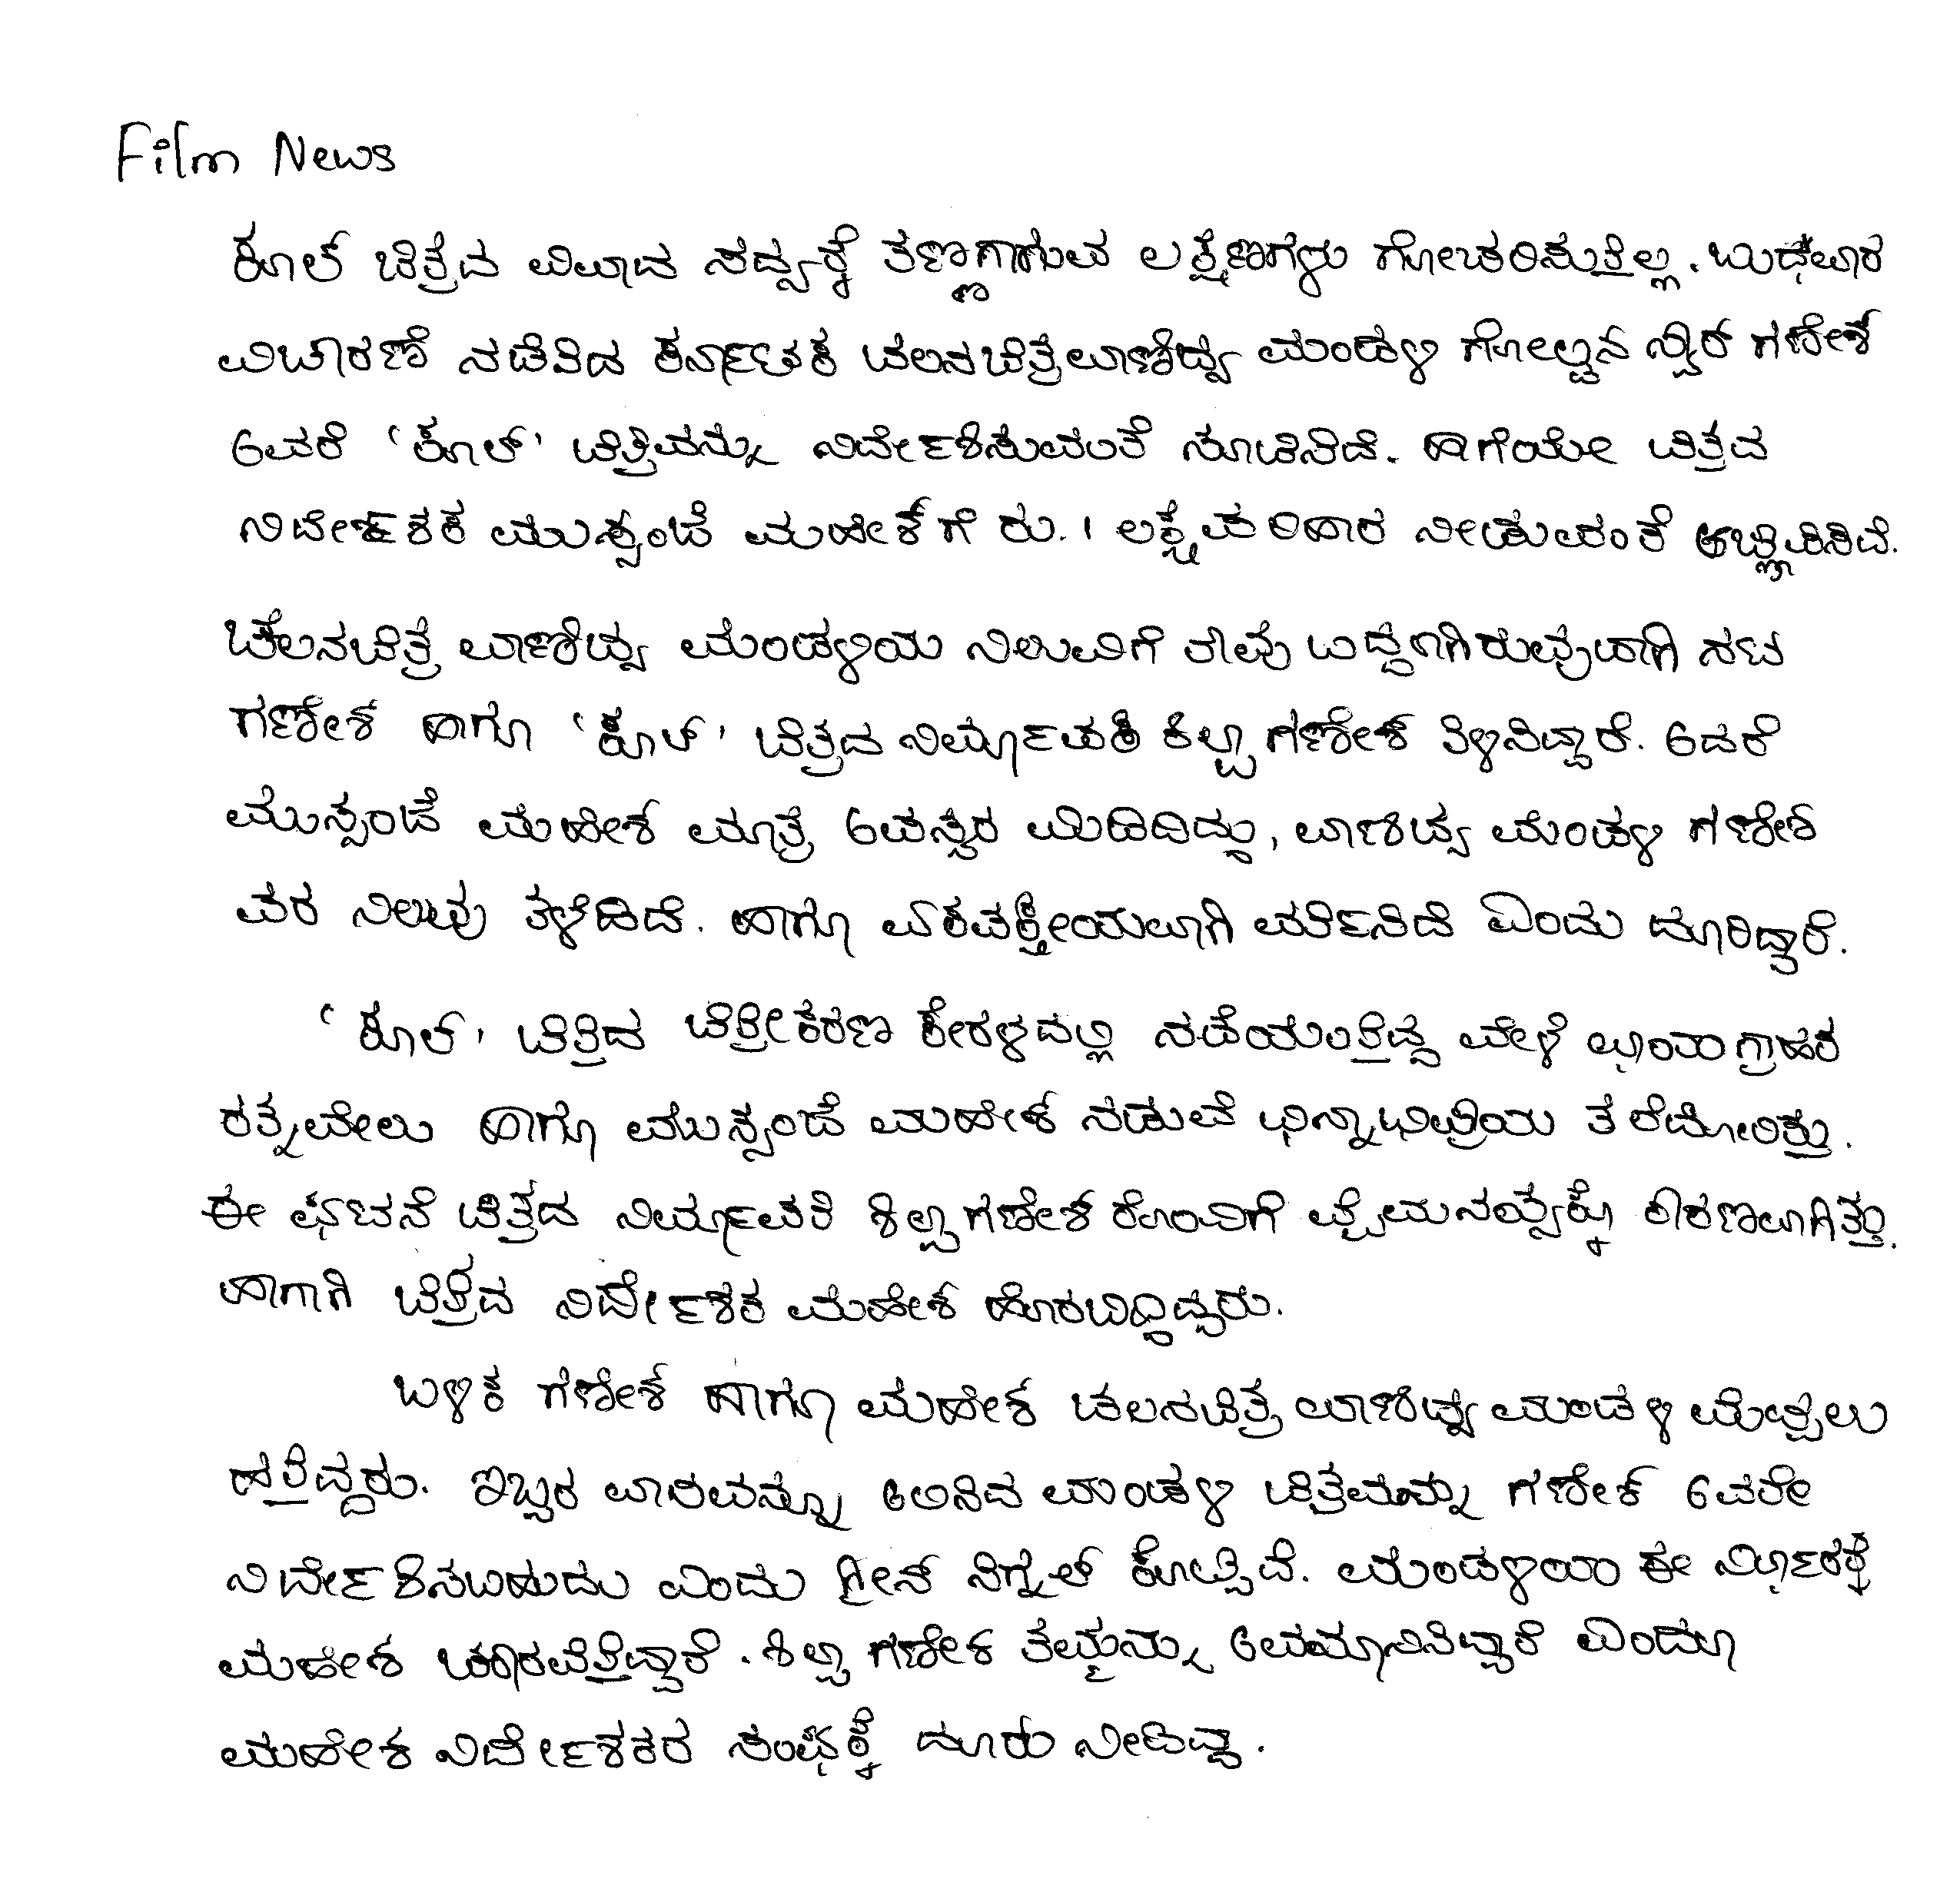 Film News
ಕೂಲ್ ಚಿತ್ರದ ವಿವಾದ ಸದ್ಯಕ್ಕೆ ತಣ್ಣಗಾಗುವ ಲಕ್ಷಣಗಳು ಗೋಚರಿಸುತ್ತಿಲ್ಲ. ಬುಧವಾರ
ವಿಚಾರಣೆ ನಡೆಸಿದ ಕರ್ನಾಟಕ ಚಲನಚಿತ್ರವಾಣಿಜ್ಯ ಮಂಡಳಿ ಗೋಲ್ಡನ್ ಸ್ಟಾರ್ ಗಣೇಶ್
ಅವರೆ 'ಕೂಲ್' ಚಿತ್ರವನ್ನು ನಿರ್ದೇಶಿಸುವಂತೆ ಸೂಚಿಸಿದೆ. ಹಾಗೆಯೇ ಚಿತ್ರದ
ನಿರ್ದೇಶಕ ಮುಸ್ಸಂಜೆ ಮಹೇಶ್‌ಗೆ ರು. 1 ಲಕ್ಷ ಪರಿಹಾರ ನೀಡುವಂತೆ ಅಜ್ಞಾಪಿಸಿದೆ.
ಚಲನಚಿತ್ರ ವಾಣಿಜ್ಯ ಮಂಡಳಿಯ ನಿಲುವಿಗೆ ತಾವು ಬದ್ಧರಾಗಿರುವುದಾಗಿ ನಟ
ಗಣೇಶ್ ಹಾಗೂ 'ಕೂಲ್' ಚಿತ್ರದ ನಿರ್ಮಾಪಕಿ ಶಿಲ್ಪಾ ಗಣೇಶ್ ತಿಳಿಸಿದ್ದಾರೆ. ಆದರೆ
ಮುಸ್ಸಂಜೆ ಮಹೇಶ್ ಮಾತ್ರ ಅಪಸ್ವರ ಮಿಡಿದಿದ್ದು, ವಾಣಿಜ್ಯ ಮಂಡಳಿ ಗಣೇಶ್
ಪರ ನಿಲುವು ತಳೆದಿದೆ. ಹಾಗೂ ಏಕಪಕ್ಷೀಯವಾಗಿ ವರ್ತಿಸಿದೆ ಎಂದು ದೂರಿದ್ದಾರೆ.
'ಕೂಲ್' ಚಿತ್ರದ ಚಿತ್ರೀಕರಣ ಕೇರಳದಲ್ಲಿ ನಡೆಯುತ್ತಿದ್ದ ವೇಳೆ ಛಾಯಾಗ್ರಾಹಕ
ರತ್ನವೇಲು ಹಾಗೂ ಮುಸ್ಸಂಜೆ ಮಹೇಶ್ ನಡುವೆ ಭಿನ್ನಾಭಿಪ್ರಾಯ ತಲೆದೋರಿತ್ತು.
ಈ ಘಟನೆ ಚಿತ್ರದ ನಿರ್ಮಾಪಕಿ ಶಿಲ್ಪಾ ಗಣೇಶ್ ರೊಂದಿಗೆ ವೈಮನಸ್ಯಕ್ಕೂ ಕಾರಣವಾಗಿತ್ತು.
ಹಾಗಾಗಿ ಚಿತ್ರದ ನಿರ್ದೇಶಕ ಮಹೇಶ್ ಹೊರಬಿದ್ದಿದ್ದರು.
ಬಳಿಕ ಗಣೇಶ್ ಹಾಗೂ ಮಹೇಶ್ ಚಲನಚಿತ್ರ ವಾಣಿಜ್ಯ ಮಂಡಳಿ ಮೆಟ್ಟಿಲು
ಹತ್ತಿದ್ದರು. ಇಬ್ಬರ ವಾದವನ್ನೂ ಆಲಿಸಿದ ಮಂಡಳಿ ಚಿತ್ರವನ್ನು ಗಣೇಶ್ ಅವರೇ
ನಿರ್ದೇಶಿಸಬಹುದು ಎಂದು ಗ್ರೀನ್ ಸಿಗ್ನಲ್ ಕೊಟ್ಟಿದೆ. ಮಂಡಳಿಯ ಈ ನಿರ್ಧಾರಕ್ಕೆ
ಮಹೇಶ್ ಚಕಾರವೆತ್ತಿದ್ದಾರೆ. ಶಿಲ್ಪಾ ಗಣೇಶ್ ತಮ್ಮನ್ನು ಅವಮಾನಿಸಿದ್ದಾರೆ ಎಂದೂ
ಮಹೇಶ್ ನಿರ್ದೇಶಕರ ಸಂಘಕ್ಕೆ ದೂರು ನೀಡಿದ್ದಾ.